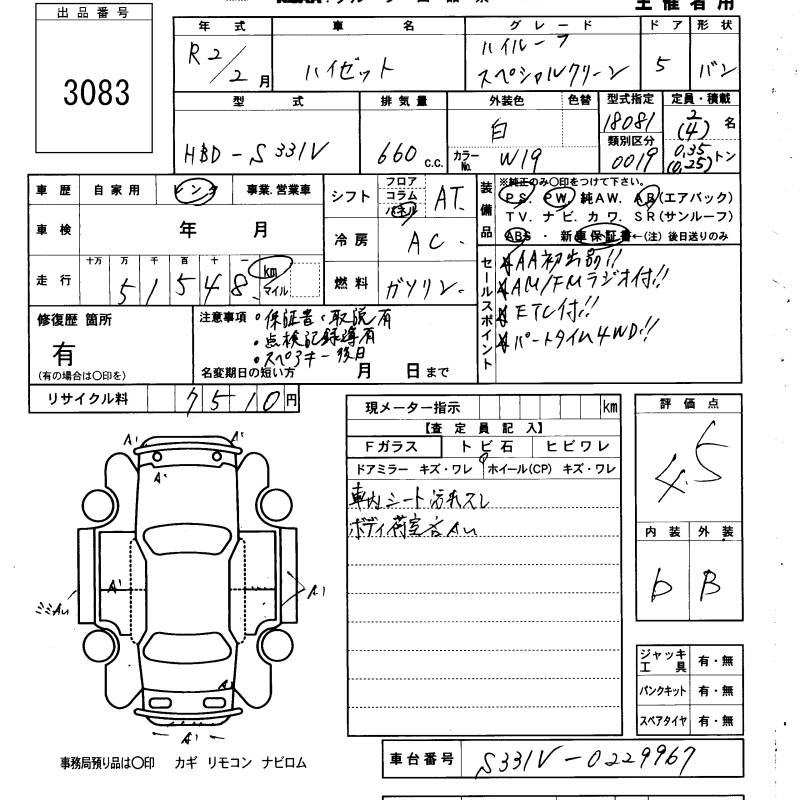 出品番号
3083
主催者用
年式 車名 グレード ドア 形状
R2/2月 ハイゼット ハイルーフ スペシャルクリーン 5 バン
型式 排気量 外装色 色替 型式指定 定員・積載
HBD-S331V 660 c.c. 白 18081 2(4) 名
カラーNo. W19 類別区分 0019 0.35(0.25) トン
車歴 自家用 レンタ 事業.営業車
車検 年 月
走行 十万 万 千 百 十 一 km マイル
5 1 5 4 8
シフト フロア コラム パネル AT.
冷房 AC.
燃料 ガソリン.
装備品
※純正のみ〇印をつけて下さい。
PS. PW. 純AW. AB(エアバック)
TV. ナビ. カワ. SR(サンルーフ)
ABS ・ 新車保証書←(注) 後日送りのみ
セールスポイント
AA初出品!!
AM/FMラジオ付!!
ETC付!!
パートタイム4WD!!
修復歴 箇所
有
(有の場合は〇印を)
注意事項
・保証書・取説有
・点検記録簿有
・スペアキー後日
名変期日の短い方 月 日まで
リサイクル料 7510円
現メーター指示 km
【査定員記入】
Fガラス トビ石 ヒビワレ
ドアミラー キズ・ワレ ホイール(CP) キズ・ワレ
車内シート汚れスレ
ボディ荷室各AU
評価点
4.5
内装 外装
b B
A' A'
A'
A' A'
ミミAU
A'
A'
ジャッキ工具 有・無
パンクキット 有・無
スペアタイヤ 有・無
車台番号 S331V-0229967
事務局預り品は〇印 カギ リモコン ナビロム